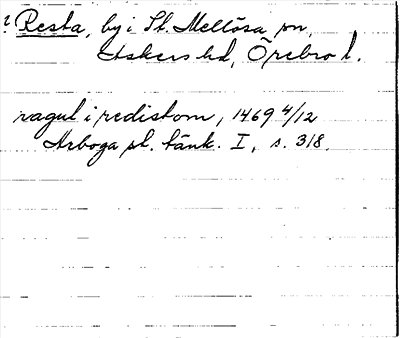 ? Resta, by i St. Mellösa sn,
Askers hd, Örebro l.
ragul i redistom, 1469 4/12
Arboga st. tänk. I, s. 318.